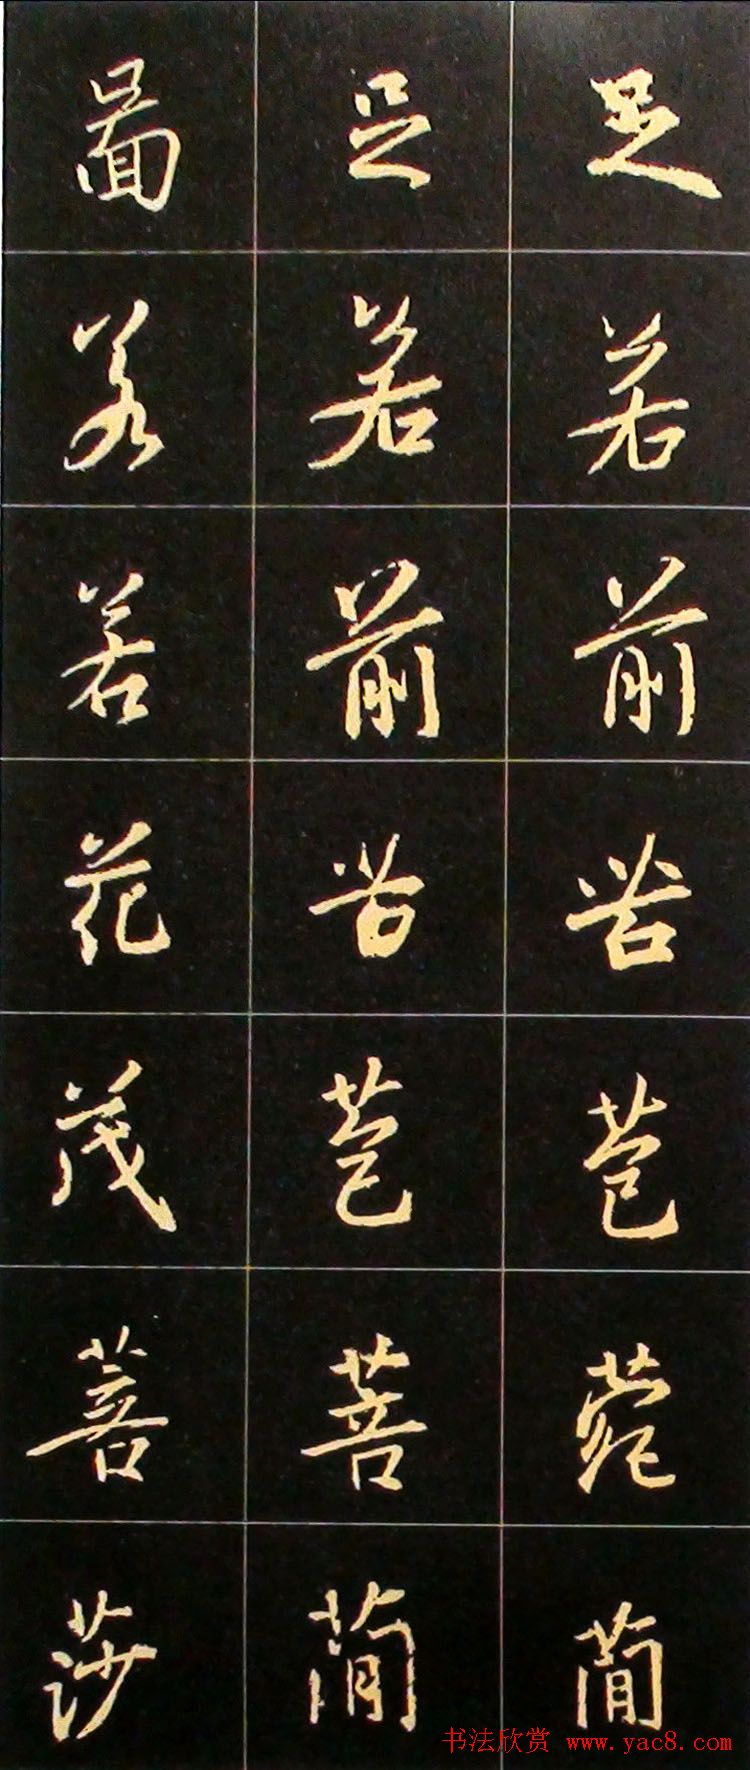 足若前苦苞簡
足若前苦苞菩簡
圖若若花茂菩莎
书法欣赏 www.yac8.com